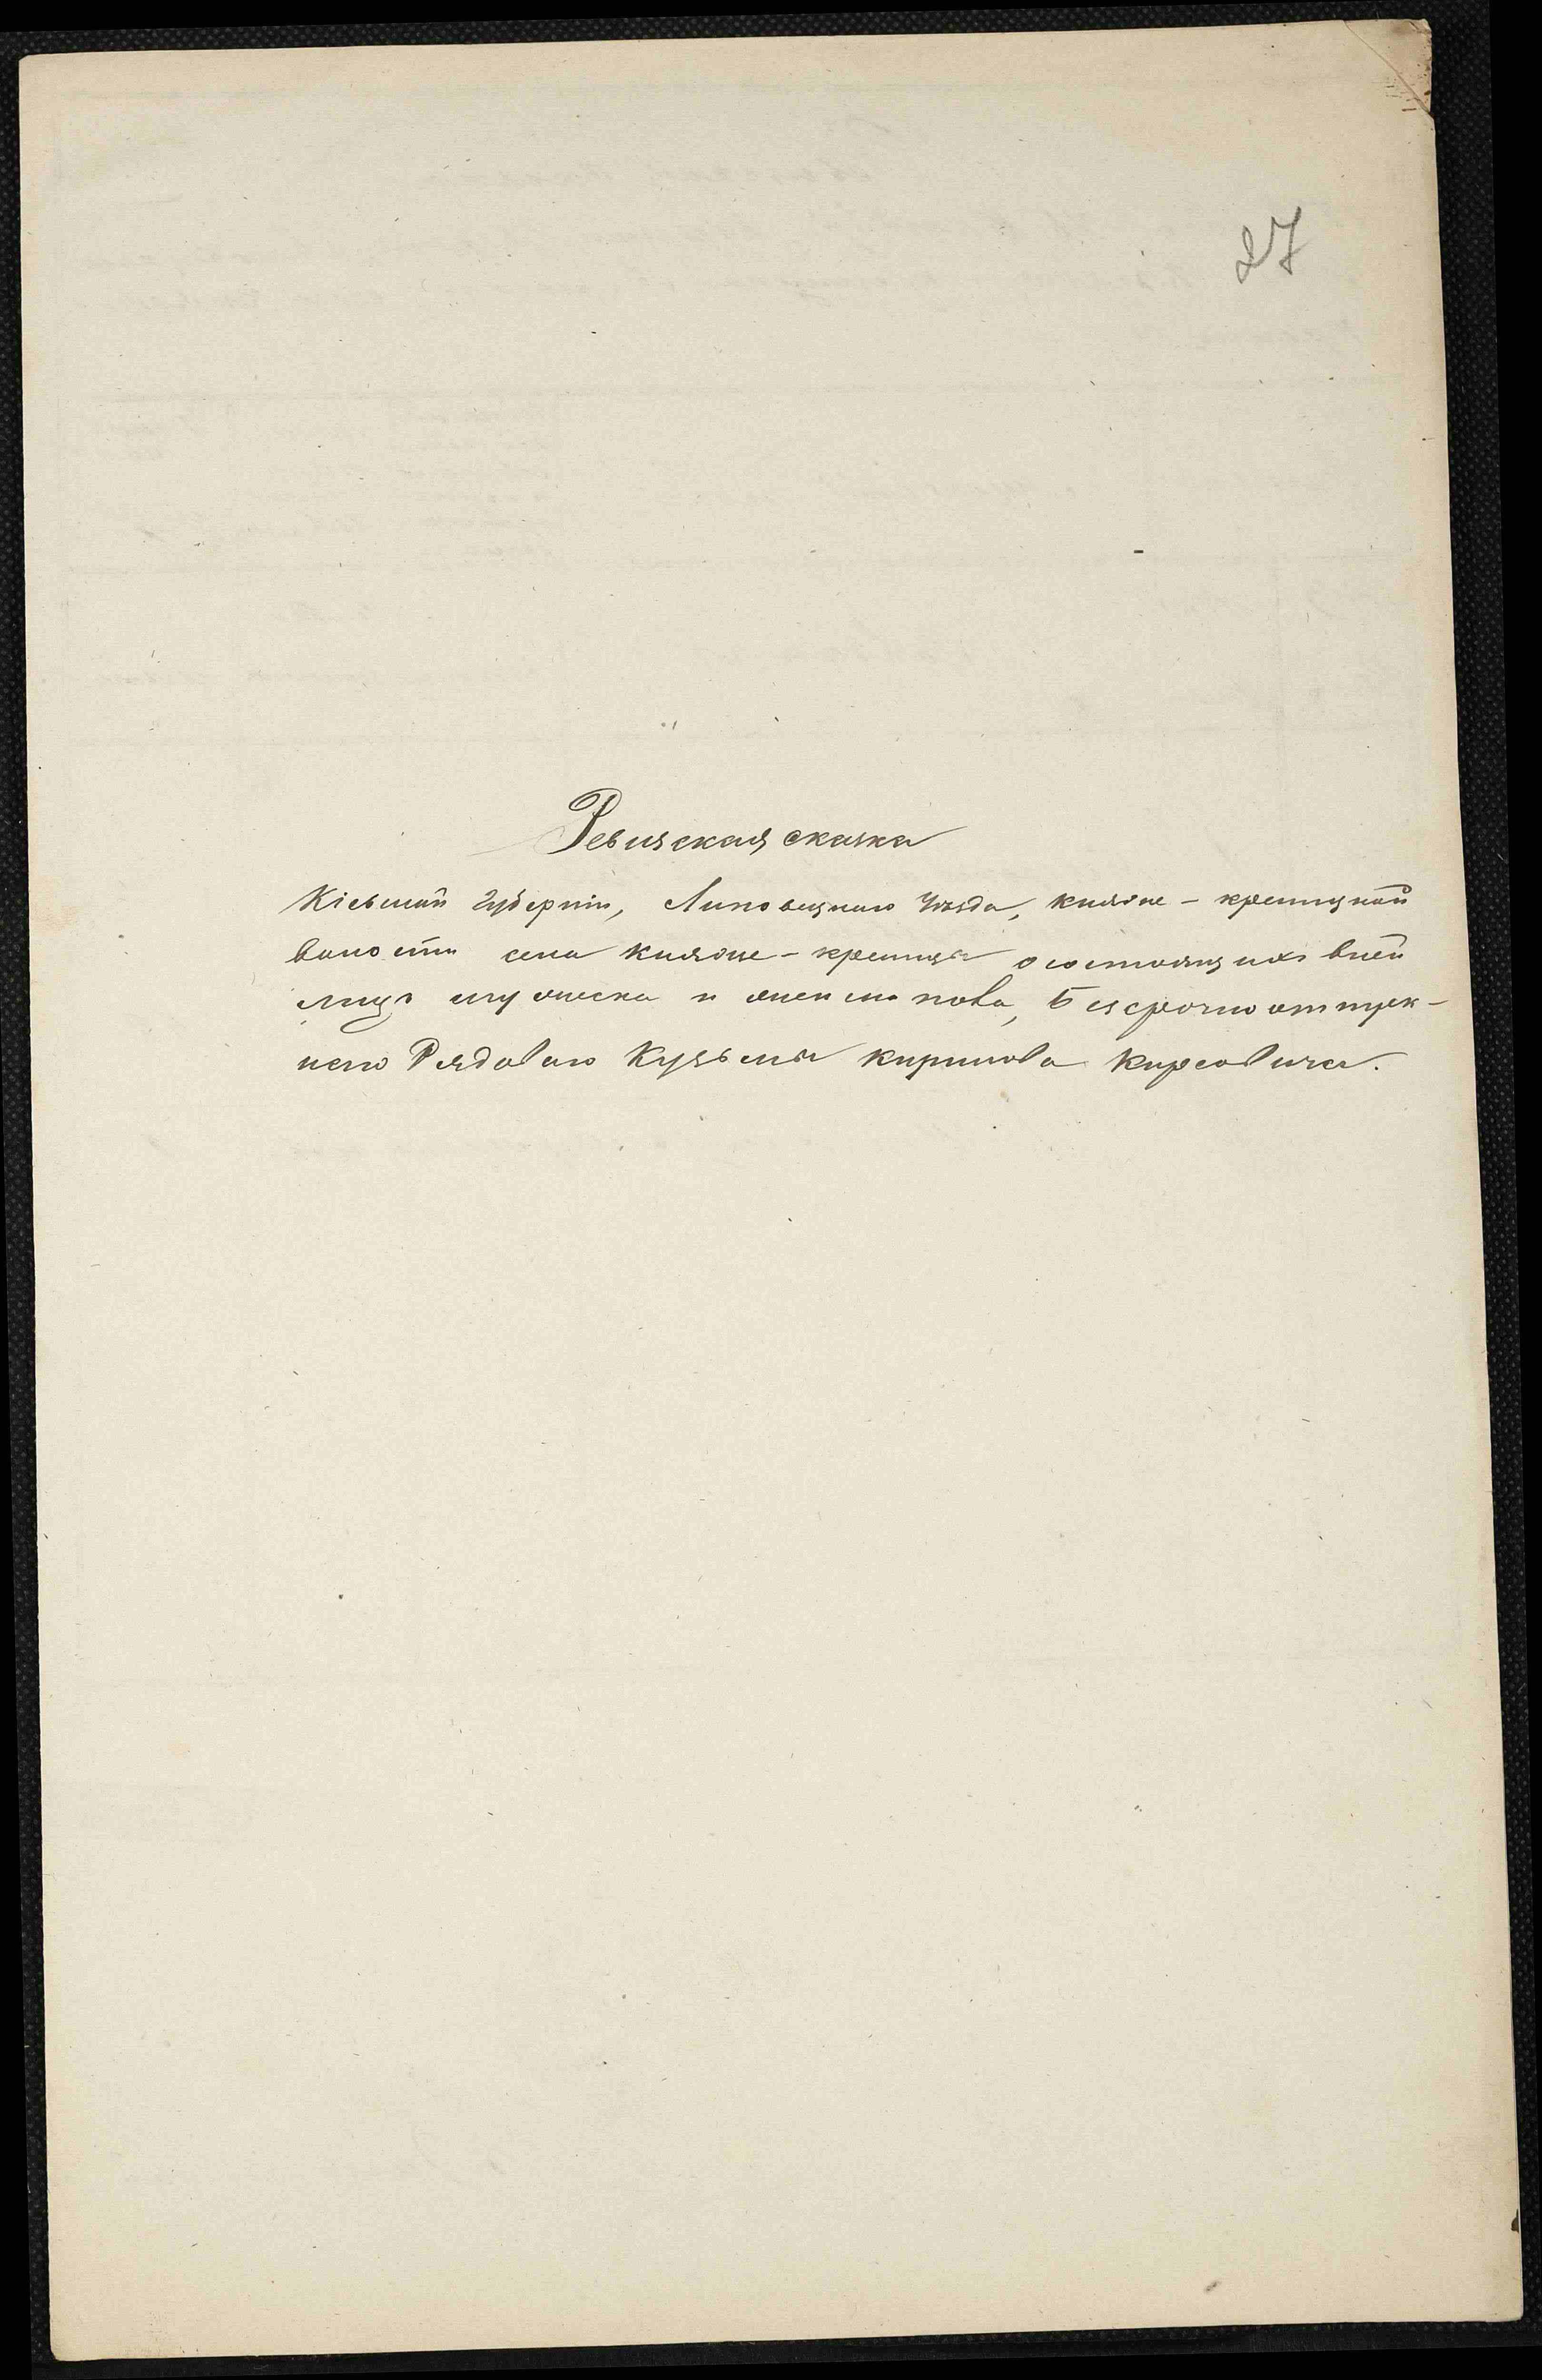 27
Ревизская сказка
Кіевской Губерніи, Липовецкаго Уѣзда, княже-крыницкой
волости села княже-крыницы о состоящихъ вней
лицъ мужеска и женска пола, Безсрочно отпуск-
наго Рядоваго Кузьмы кирилова Кирсовича.